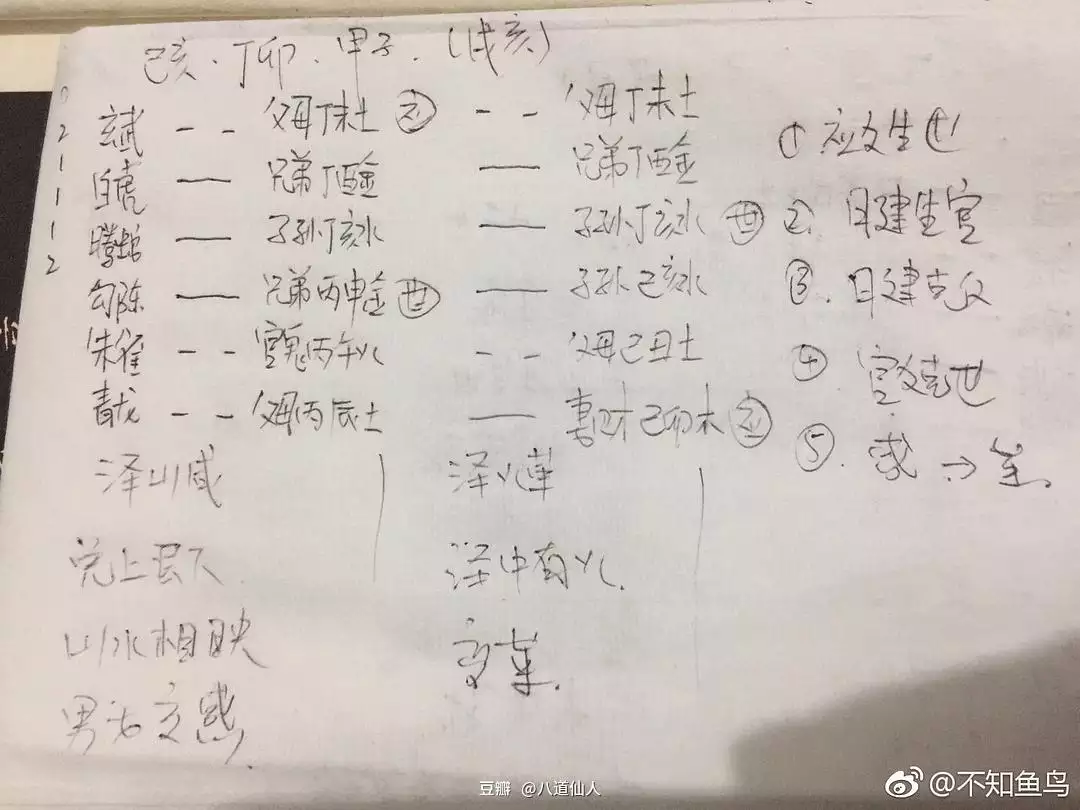 己亥、丁卯、甲子、(戌亥)
2 玄武 -- 父母丁未土 应 -- 父母丁未土
1 白虎 — 兄弟丁酉金 — 兄弟丁酉金
1 螣蛇 — 子孙丁亥水 — 子孙丁亥水 世
1 勾陈 — 兄弟丙申金 世 — 子孙己亥水
2 朱雀 -- 官鬼丙午火 -- 父母己丑土
青龙 -- 父母丙辰土 — 妻财己卯木 应
① 应爻生世
②. 日建生官
③. 日建克父
④ 官爻克世
⑤.
泽山咸
兑上艮下
山水相映
男女交感.
泽火革
泽中有火.
变革.
豆瓣 @八道仙人
@不知鱼鸟